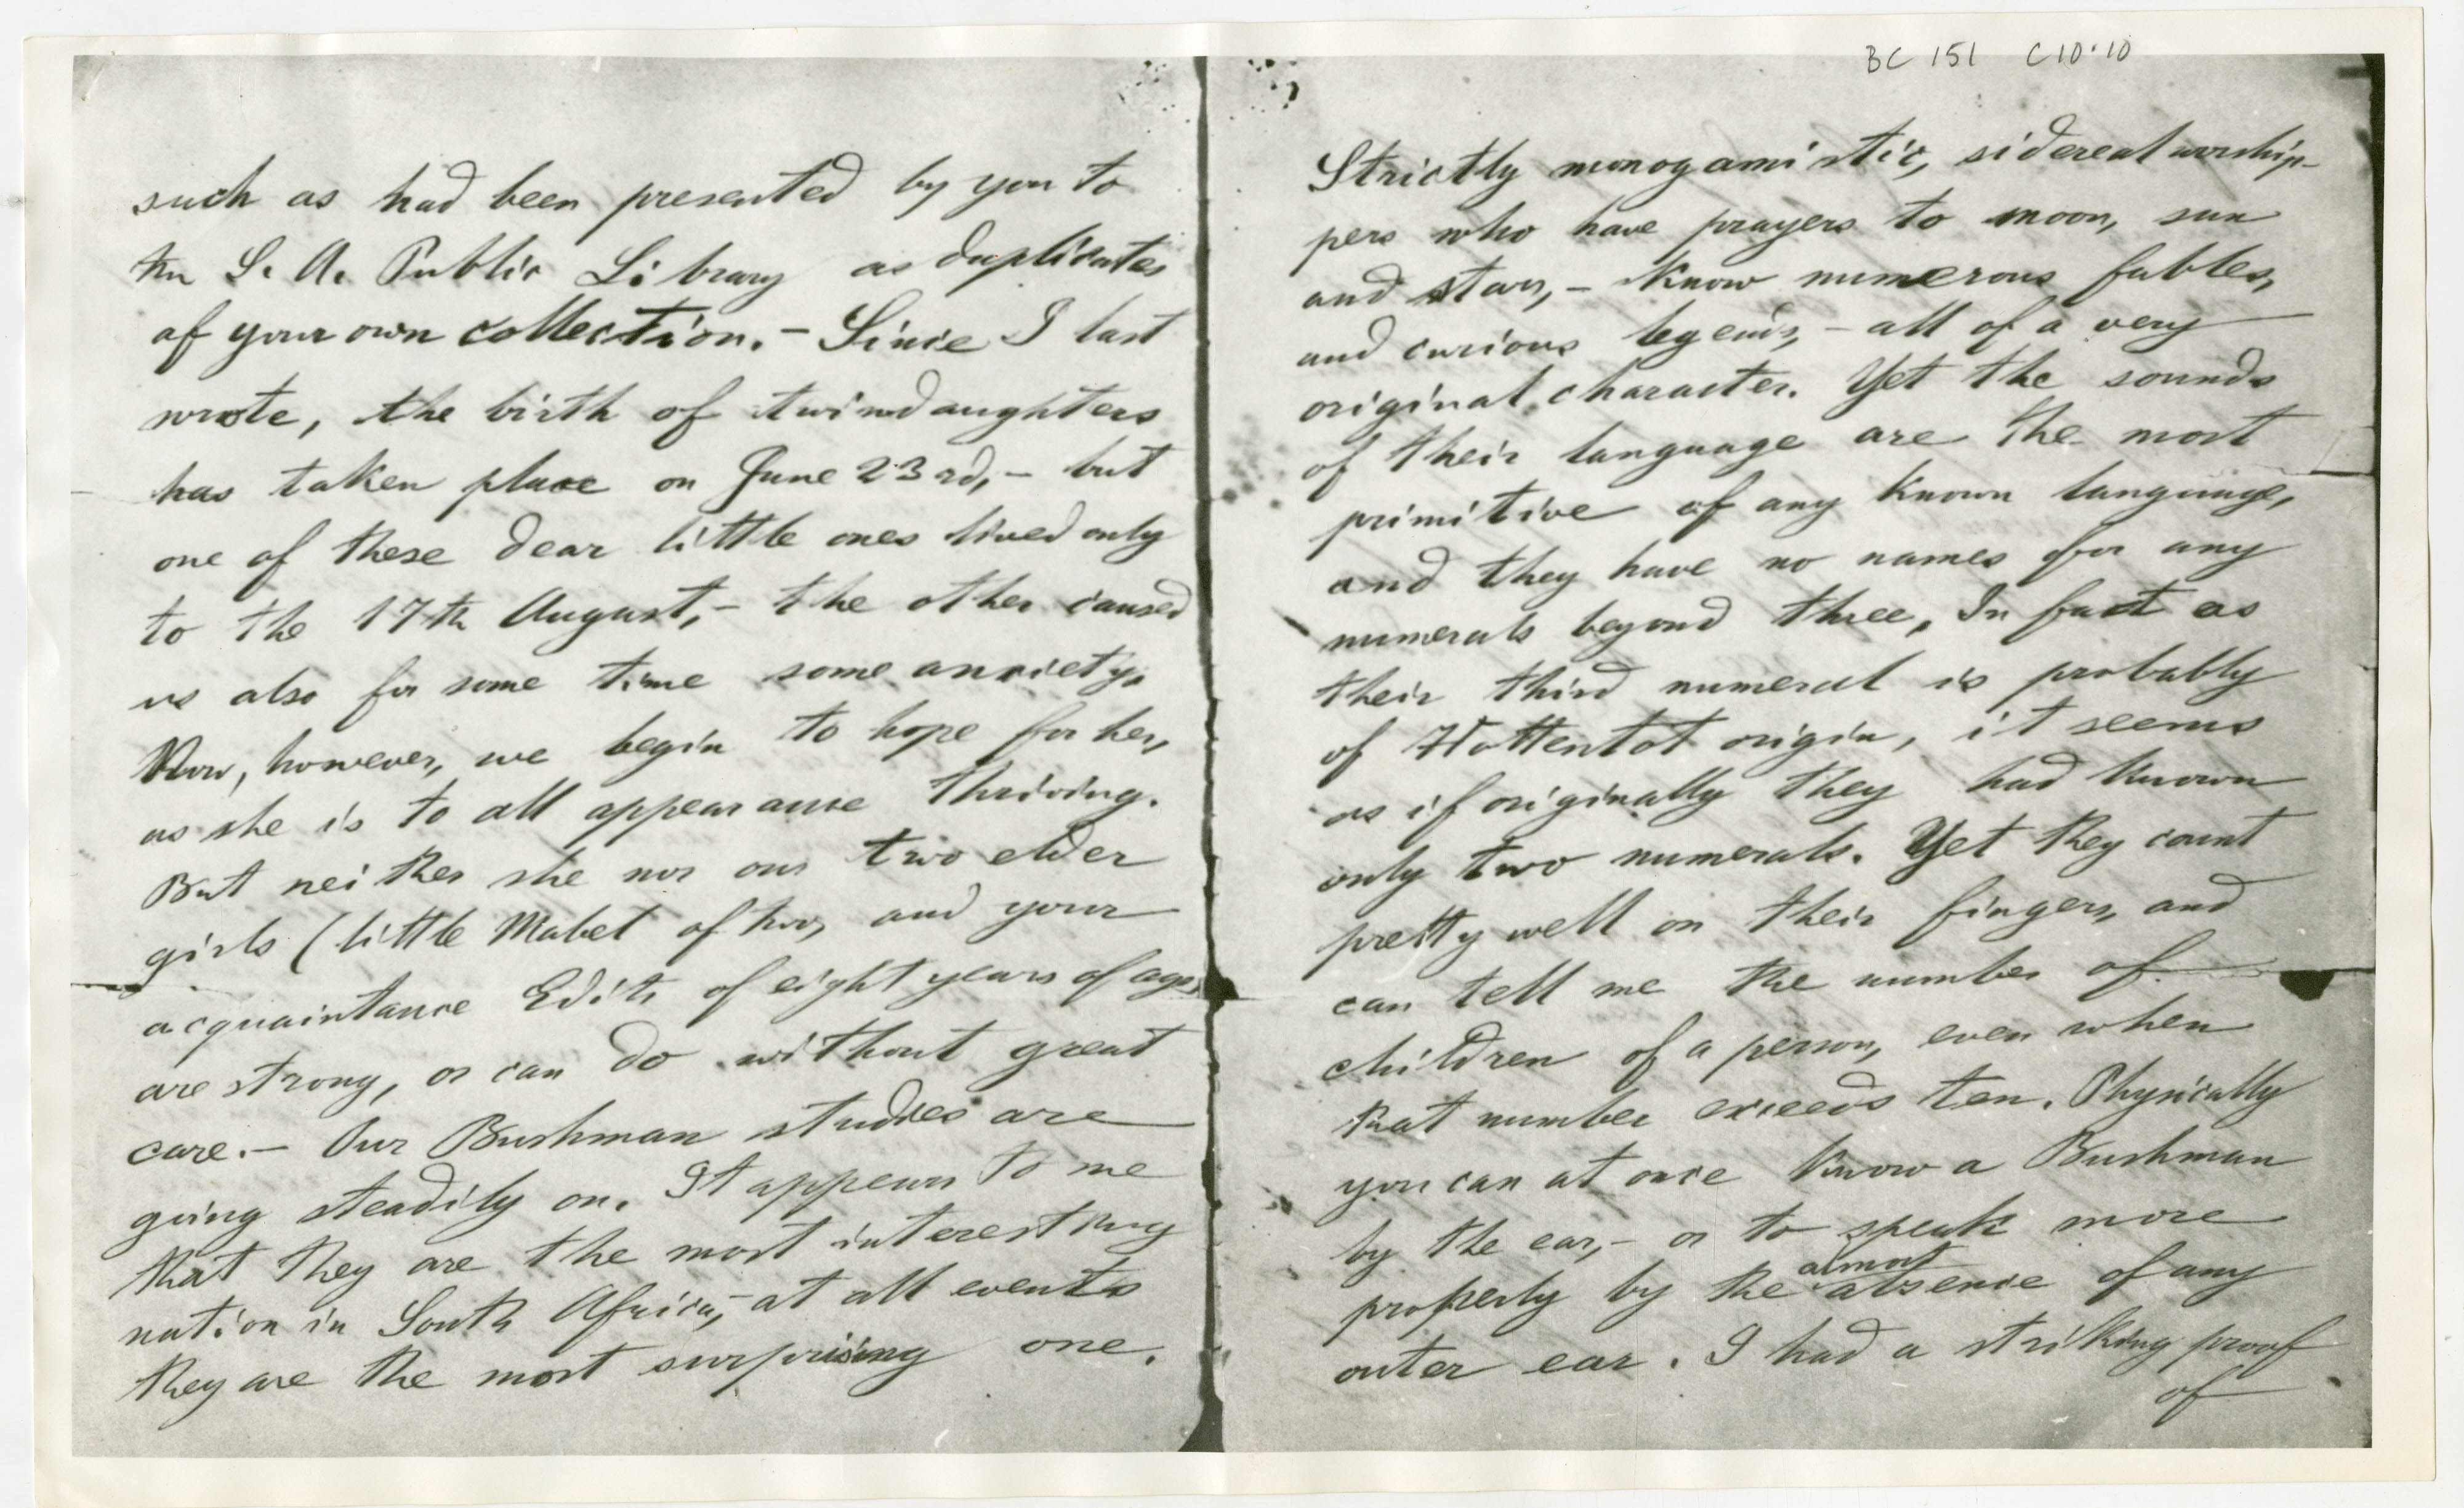 BC 151 C10.10
such as had been presented by you to
the S. A. Public Library as duplicates
of your own collection. - Since I last
wrote, the birth of twindaughters
has taken place on June 23rd, - but
one of these dear little ones lived only
to the 17th August, - the other caused
us also for some time some anxiety.
Now, however, we begin to hope for her,
as she is to all appearance thriving.
But neither she nor our two elder
girls (little Mabel of two, and your
acquaintance Edith of eight years of age)
are strong, or can do without great
care. - Our Bushman studies are
going steadily on. It appears to me
that they are the most interesting
nation in South Africa, - at all events
they are the most surprising one.
Strictly monogamistic, sidereal worship-
pers who have prayers to moon, sun
and stars, - know numerous fables,
and curious legends, - all of a very
original character. Yet the sounds
of their language are the most
primitive of any known language,
and they have no names for any
numerals beyond three, In fact as
their third numeral is probably
of Hottentot origin, it seems
as if originally they had known
only two numerals. Yet they count
pretty well on their fingers, and
can tell me the number of
children of a person, even when
that number exceeds ten. Physically
you can at once know a Bushman
by the ear, - or to speak more
properly by the almost absence of any
outer ear. I had a striking proof
of